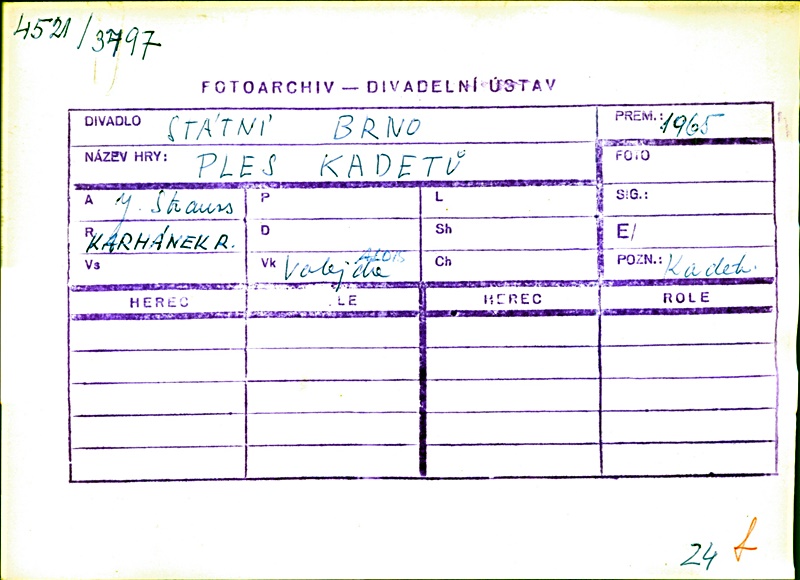 4521/3797
FOTOARCHIV — DIVADELNÍ ÚSTAV
DIVADLO STÁTNÍ BRNO
PREM.: 1965
NÁZEV HRY: PLES KADETŮ
FOTO
A J. Strauss
P
L
SIG.:
R KARHÁNEK R.
D
Sh
E/
Vs
Vk Vobejda ALOIS
Ch
POZN.: Kadeti.
HEREC
LE
HEREC
ROLE
24